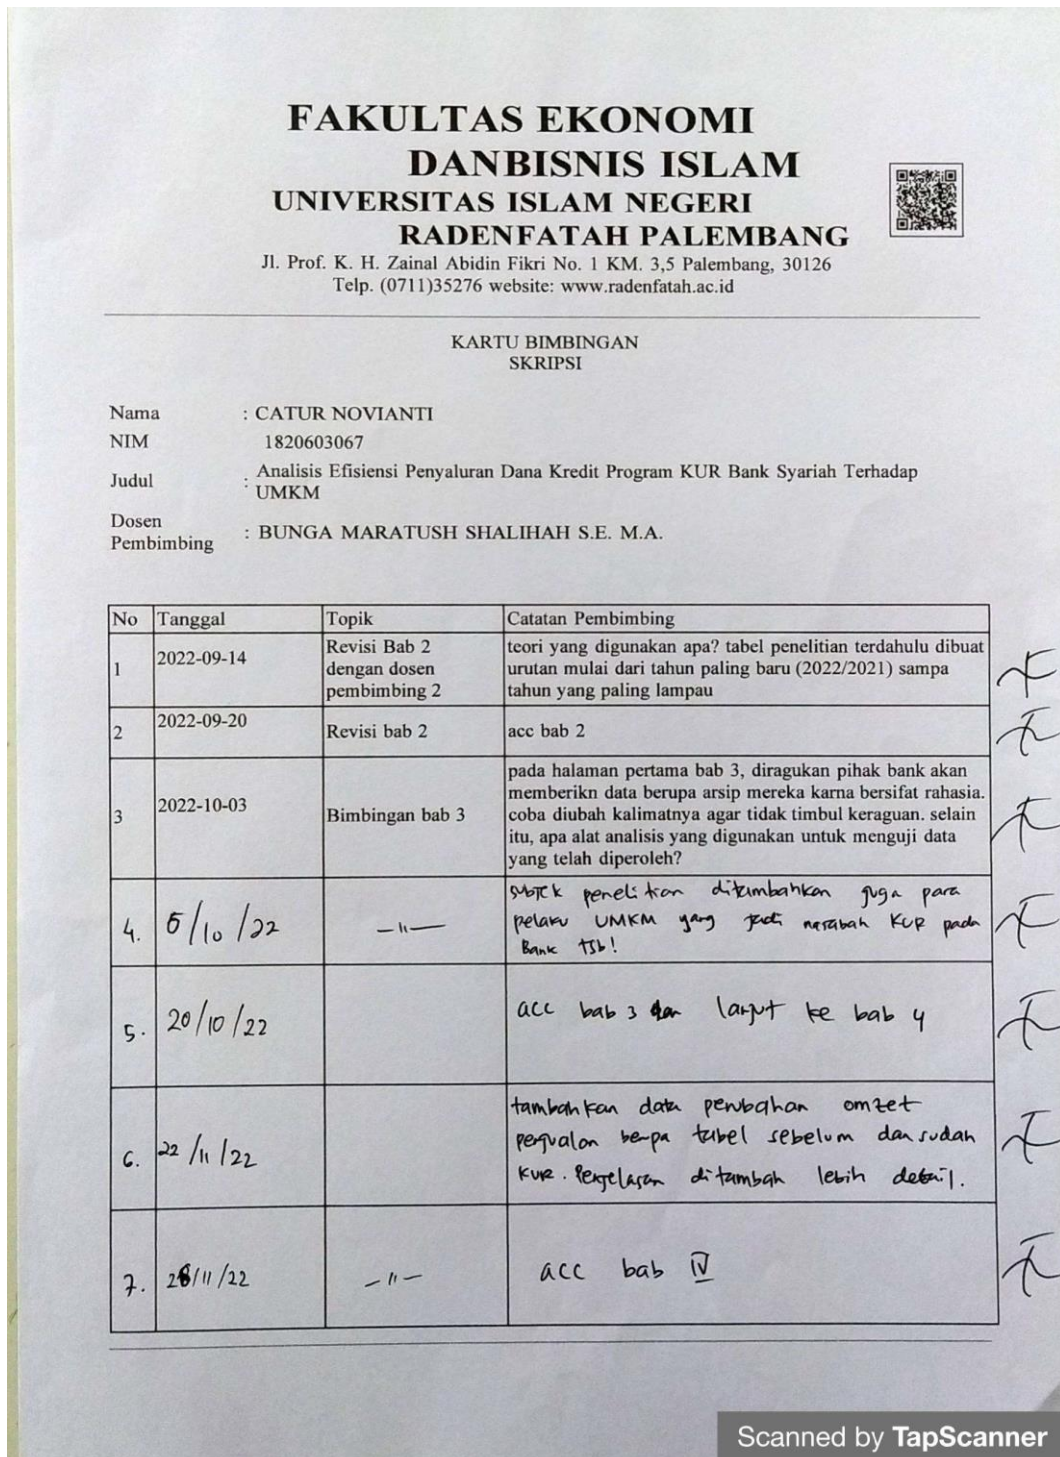 FAKULTAS EKONOMI
DANBISNIS ISLAM
UNIVERSITAS ISLAM NEGERI
RADENFATAH PALEMBANG
Jl. Prof. K. H. Zainal Abidin Fikri No. 1 KM. 3,5 Palembang, 30126
Telp. (0711)35276 website: www.radenfatah.ac.id
KARTU BIMBINGAN
SKRIPSI
Nama : CATUR NOVIANTI
NIM 1820603067
Judul : Analisis Efisiensi Penyaluran Dana Kredit Program KUR Bank Syariah Terhadap
UMKM
Dosen
Pembimbing : BUNGA MARATUSH SHALIHAH S.E. M.A.
No Tanggal Topik Catatan Pembimbing
1 2022-09-14
Revisi Bab 2
dengan dosen
pembimbing 2
teori yang digunakan apa? tabel penelitian terdahulu dibuat
urutan mulai dari tahun paling baru (2022/2021) sampa
tahun yang paling lampau
2 2022-09-20 Revisi bab 2 acc bab 2
3 2022-10-03 Bimbingan bab 3
pada halaman pertama bab 3, diragukan pihak bank akan
memberikn data berupa arsip mereka karna bersifat rahasia.
coba diubah kalimatnya agar tidak timbul keraguan. selain
itu, apa alat analisis yang digunakan untuk menguji data
yang telah diperoleh?
4. /10/22 —"—
subjek penelitian ditambahkan juga para
pelaku UMKM yang jadi nasabah KUR pada
Bank tsb!
5. 20/10/22 acc bab 3 dan lanjut ke bab 4
6. 22/11/22
tambahkan data perubahan omzet
penjualan berpa tabel sebelum dan sudah
KUR. Penjelasan ditambah lebih detail.
7. 28/11/22 —"— acc bab IV
Scanned by TapScanner